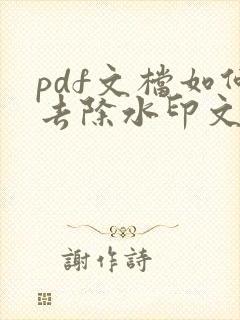 pdf文檔如何
去除水印文
謝作詩